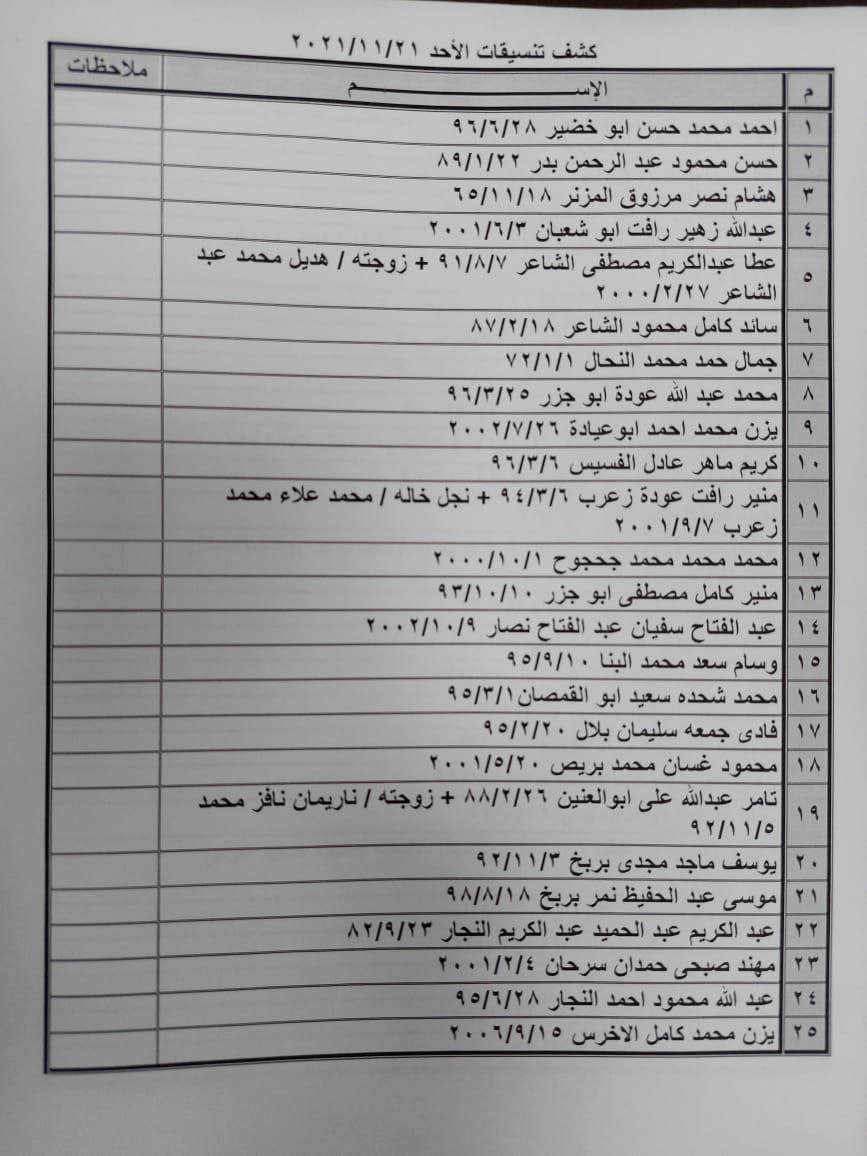 كشف تنسيقات الأحد ٢٠٢١/١١/٢١
م الإســـــــــم ملاحظات
١ احمد محمد حسن ابو خضير ٩٦/٦/٢٨
٢ حسن محمود عبد الرحمن بدر ٨٩/١/٢٢
٣ هشام نصر مرزوق المزنر ٦٥/١١/١٨
٤ عبدالله زهير رافت ابو شعبان ٢٠٠١/٦/٣
٥ عطا عبدالكريم مصطفى الشاعر ٩١/٨/٧ + زوجته / هديل محمد عبد
الشاعر ٢٠٠٠/٢/٢٧
٦ سائد كامل محمود الشاعر ٨٧/٢/١٨
٧ جمال حمد محمد النحال ٧٢/١/١
٨ محمد عبد الله عودة ابو جزر ٩٦/٣/٢٥
٩ يزن محمد احمد ابوعيادة ٢٠٠٢/٧/٢٦
١٠ كريم ماهر عادل الفسيس ٩٦/٣/٦
١١ منير رافت عودة زعرب ٩٤/٣/٦ + نجل خاله / محمد علاء محمد
زعرب ٢٠٠١/٩/٧
١٢ محمد محمد محمد جحجوح ٢٠٠٠/١٠/١
١٣ منير كامل مصطفى ابو جزر ٩٣/١٠/١٠
١٤ عبد الفتاح سفيان عبد الفتاح نصار ٢٠٠٢/١٠/٩
١٥ وسام سعد محمد البنا ٩٥/٩/١٠
١٦ محمد شحده سعيد ابو القمصان ٩٥/٣/١
١٧ فادى جمعه سليمان بلال ٩٥/٢/٢٠
١٨ محمود غسان محمد بريص ٢٠٠١/٥/٢٠
١٩ تامر عبدالله على ابوالعنين ٨٨/٢/٢٦ + زوجته / ناريمان نافز محمد
٩٢/١١/٥
٢٠ يوسف ماجد مجدى بربخ ٩٢/١١/٣
٢١ موسى عبد الحفيظ نمر بربخ ٩٨/٨/١٨
٢٢ عبد الكريم عبد الحميد عبد الكريم النجار ٨٢/٩/٢٣
٢٣ مهند صبحى حمدان سرحان ٢٠٠١/٢/٤
٢٤ عبد الله محمود احمد النجار ٩٥/٦/٢٨
٢٥ يزن محمد كامل الاخرس ٢٠٠٦/٩/١٥